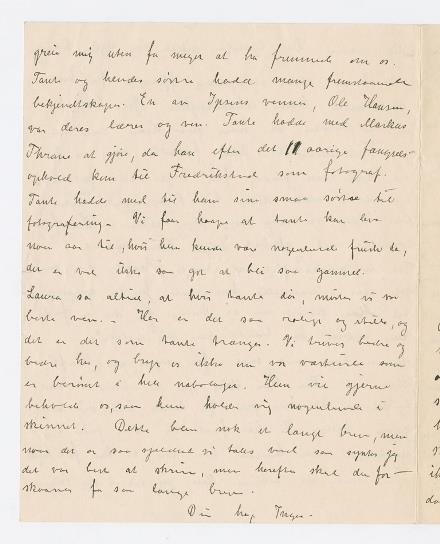 greie mig uten fa meget at ha fremmede om os.
Tante og hendes søstre hadde mange fremstaaende
bekjendtskaper. En av Ipsens venner, Ole Hansen,
var deres lærer og ven. Tante hadde med Markus
Thrane at gjøre, da han efter det 11 aarige fængsels-
ophold kom til Fredrikstad som fotograf.
Tante hadde med til ham sine smaa søstre til
fotografering. Vi faar haape at tante kan leve
noen aar til, hvis hun kunde være nogenlunde frisk da,
det er vel ikke saa got at bli saa gammel.
Laura sa altid, at hvis tante dør, mister vi vor
beste ven. - Her er det saa rolig og stille, og
det er det som tante trænger. Vi trives bedre og
bedre her, og bryr os ikke om vor vertinde som
er berømt i hele nabolaget. Hun vil gjerne
beholde os, saa hun holder sig nogenlunde i
skinnet. Dette blev nok et langt brev, men
naar det er saa sjelden vi tales ved saa syntes jeg
det var best at skrive, men herefter skal du for-
skaanes for saa lange brev.
Din Inga.